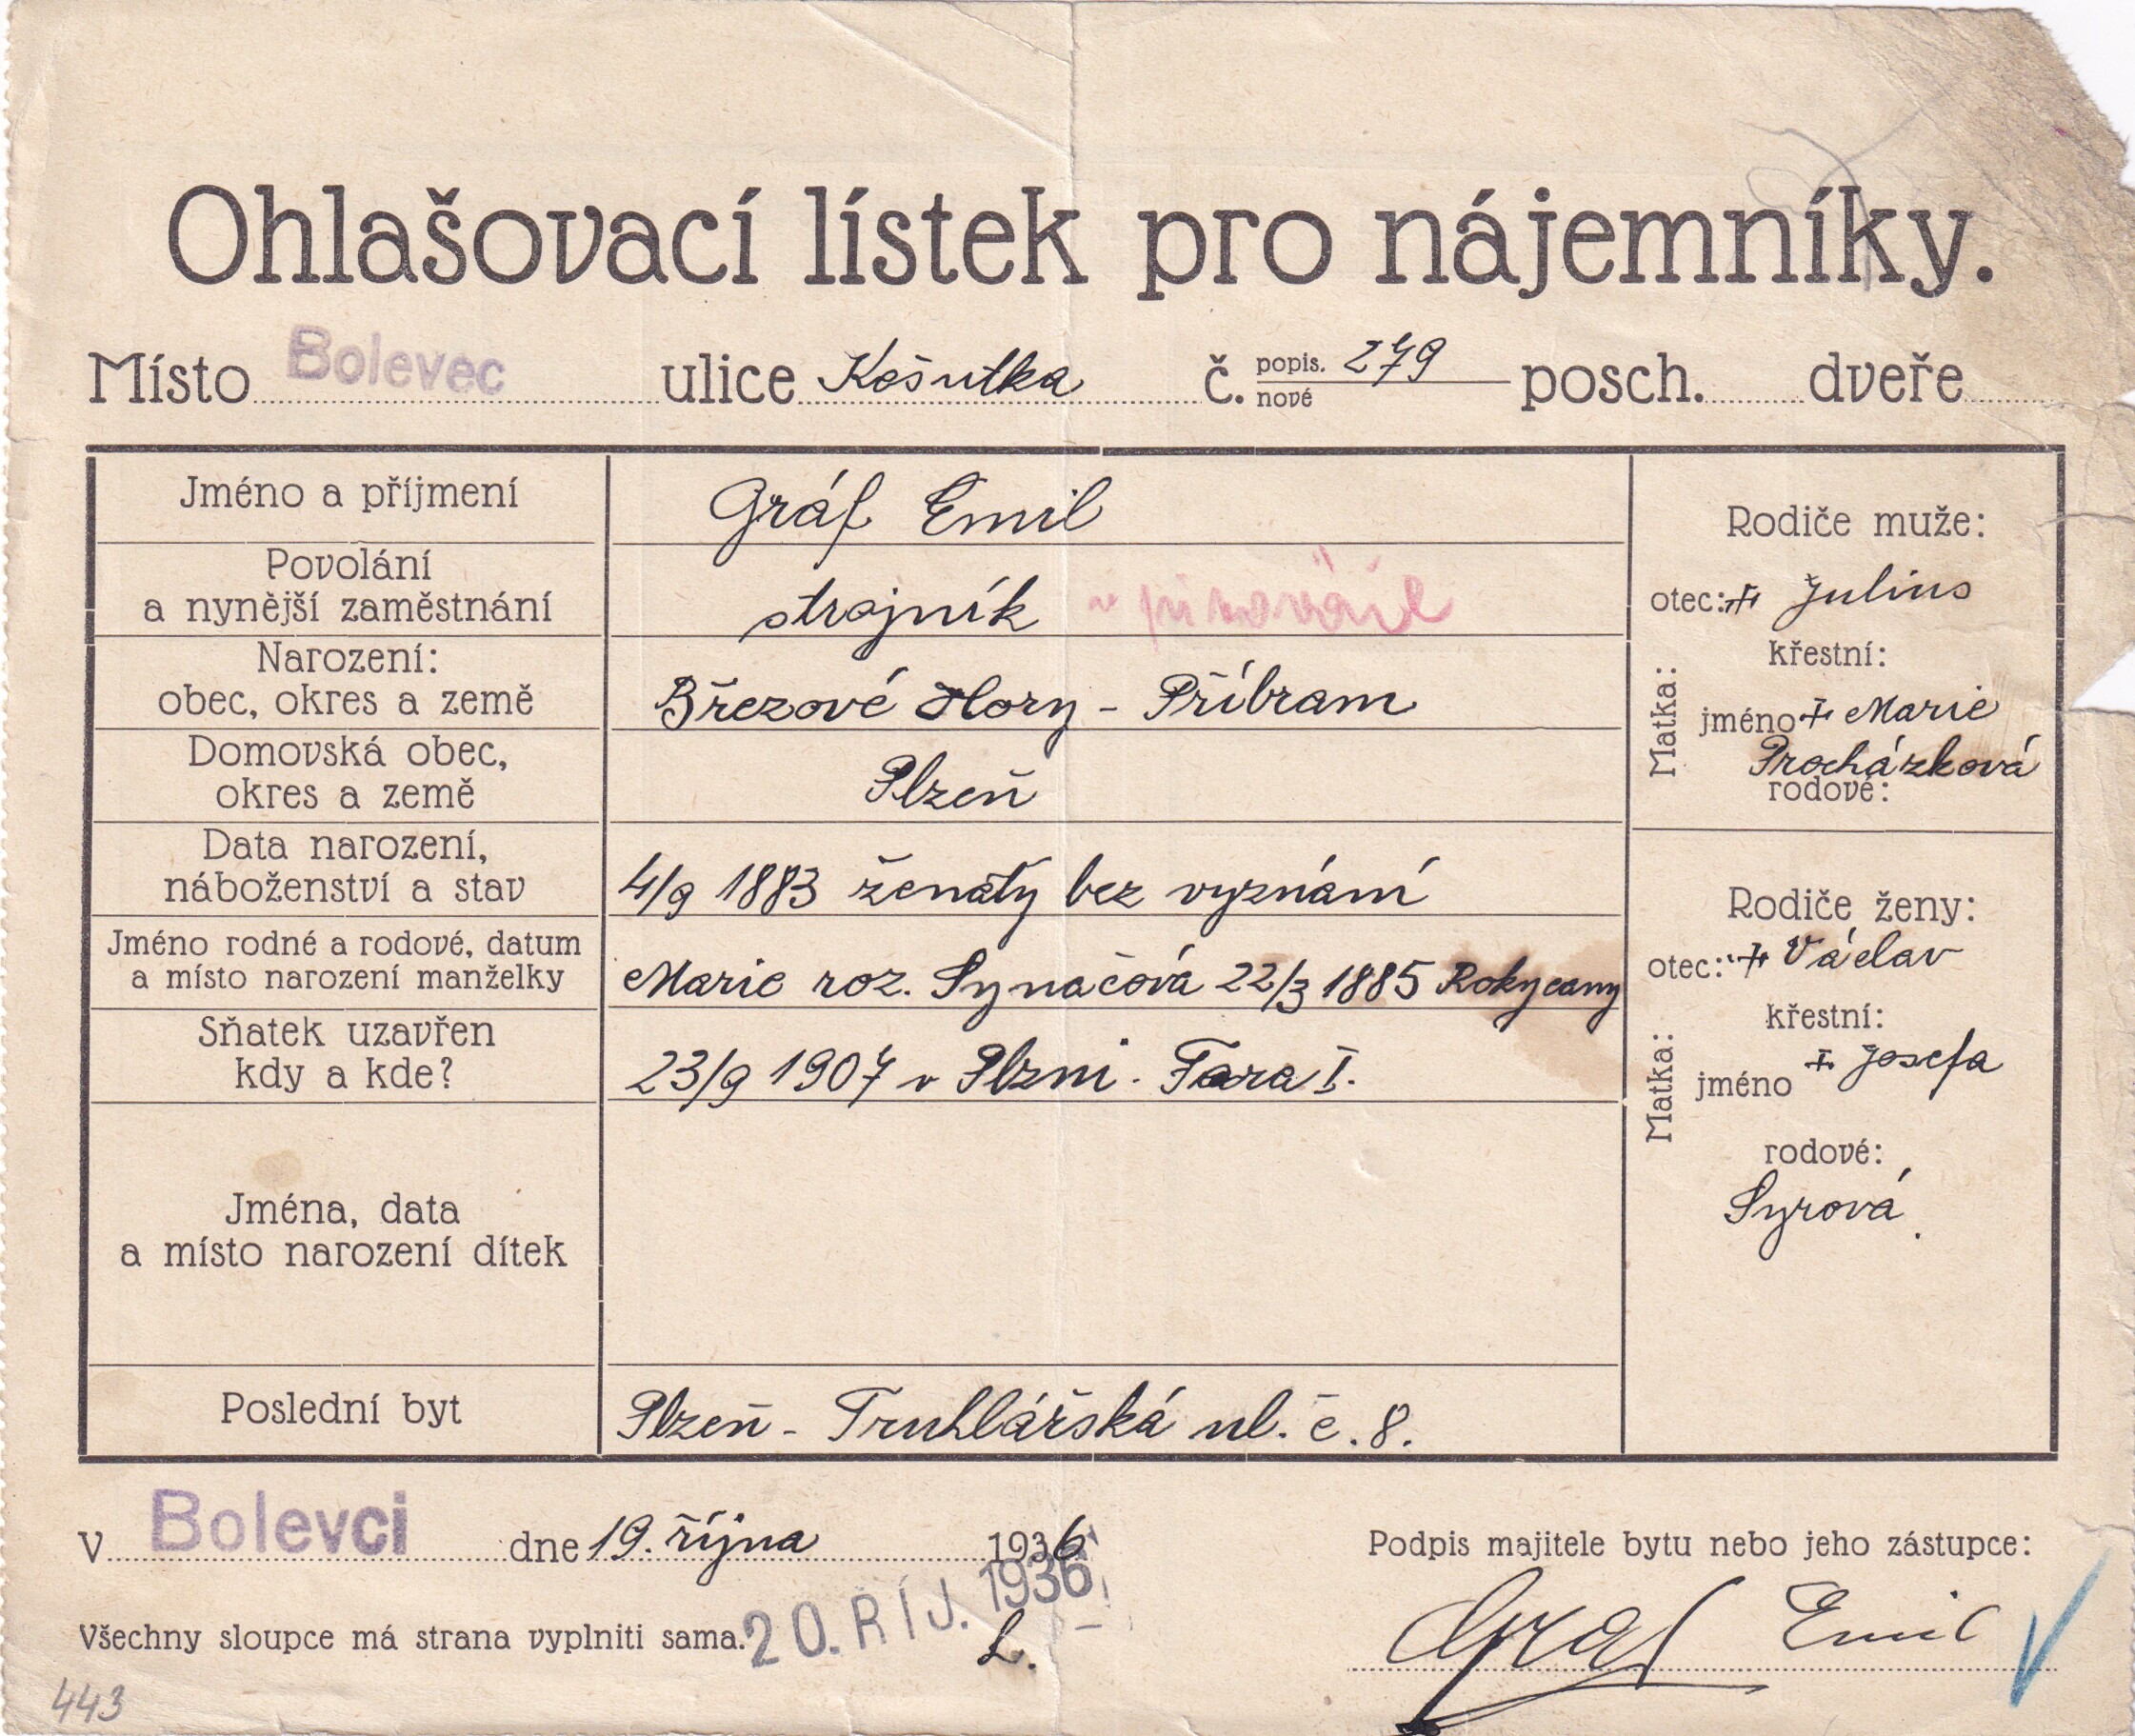 Ohlašovací lístek pro nájemníky.
Místo Bolevec ulice Košutka č. popis. 279 nové posch. dveře
Jméno a příjmení
Gráf Emil
Povolání
a nynější zaměstnání
strojník v pivováře
Narození:
obec, okres a země
Březové Hory - Příbram
Domovská obec,
okres a země
Plzeň
Data narození,
náboženství a stav
4/9 1883 ženatý bez vyznání
Jméno rodné a rodové, datum
a místo narození manželky
Marie roz. Synačová 22/3 1885 Rokycany
Sňatek uzavřen
kdy a kde?
23/9 1907 v Plzni. Fara I.
Jména, data
a místo narození dítek
Poslední byt
Plzeň - Truhlářská ul. č. 8.
Rodiče muže:
otec: + Julius
Matka:
křestní:
jméno + Marie
Procházková
rodové:
Rodiče ženy:
otec: + Václav
Matka:
křestní:
jméno + Josefa
rodové:
Syrová.
V Bolevci dne 19. října 1936
20. ŘÍJ. 1936
Všechny sloupce má strana vyplniti sama.
L.
Podpis majitele bytu nebo jeho zástupce:
Gráf Emil
443